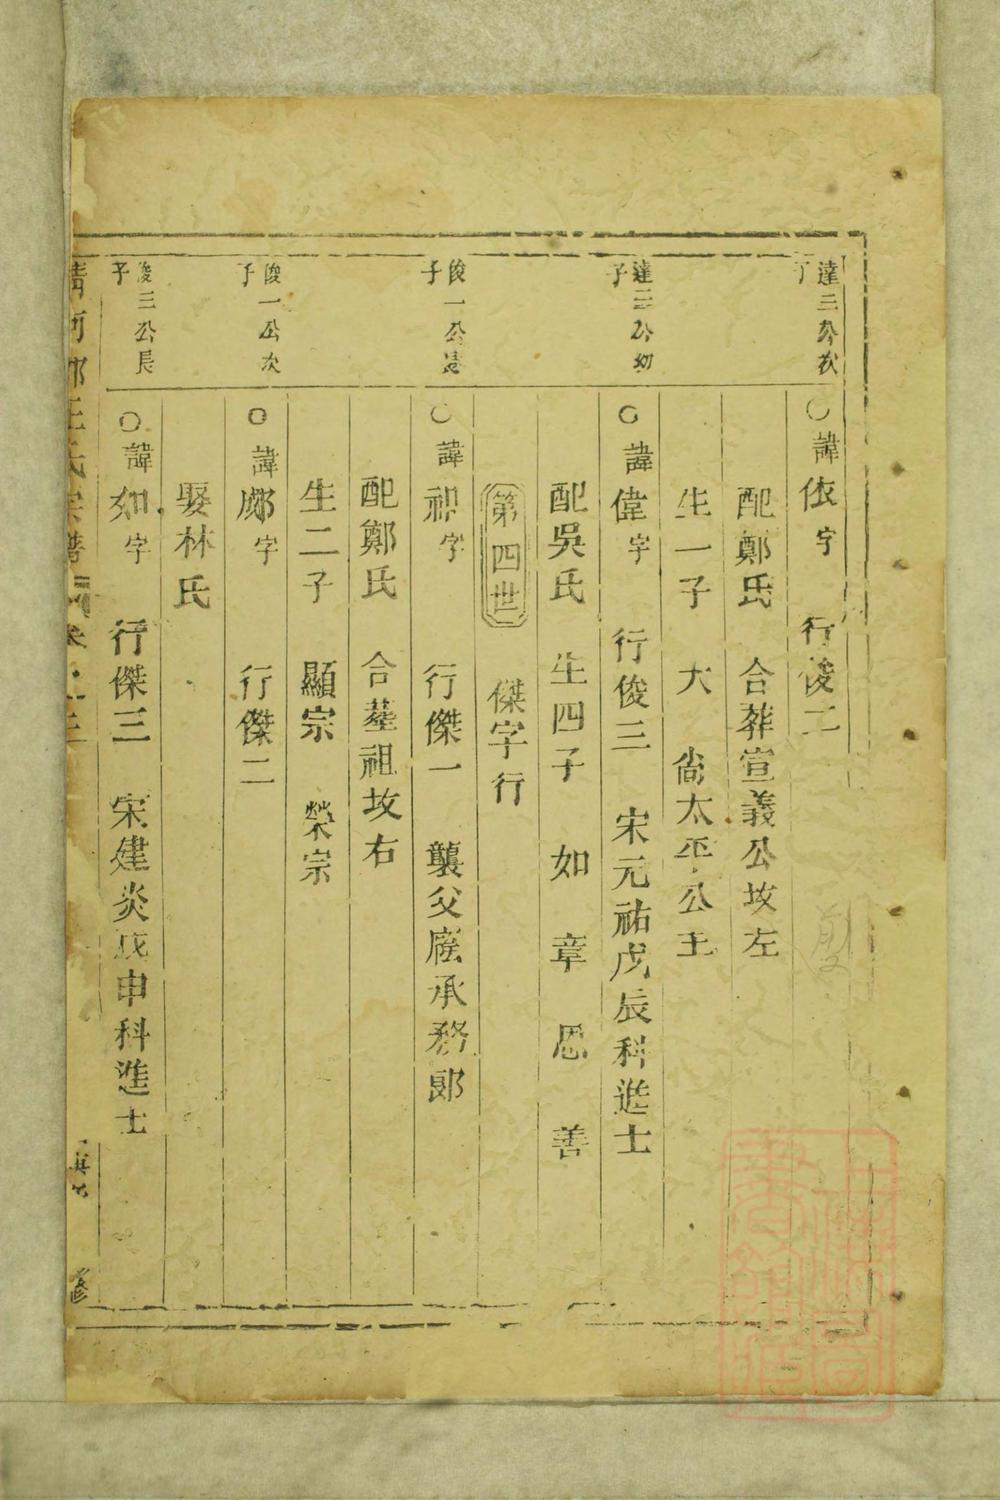 達三公次子
○諱依字 行俊二
配鄭氏 合葬宣義公坟左
生一子 大 尙太平公主
達三公幼子
○諱偉字 行俊三 宋元祐戊辰科進士
配吳氏 生四子 如 章 思 善
第四世 傑字行
俊一公長子
○諱祖字 行傑一 襲父廕承務郞
配鄭氏 合塟祖坟右
生二子 顯宗 榮宗
俊一公次子
○諱字 行傑二
娶林氏
俊三公長子
○諱如字 行傑三 宋建炎戊申科進士
清河郡王氏宗譜 修